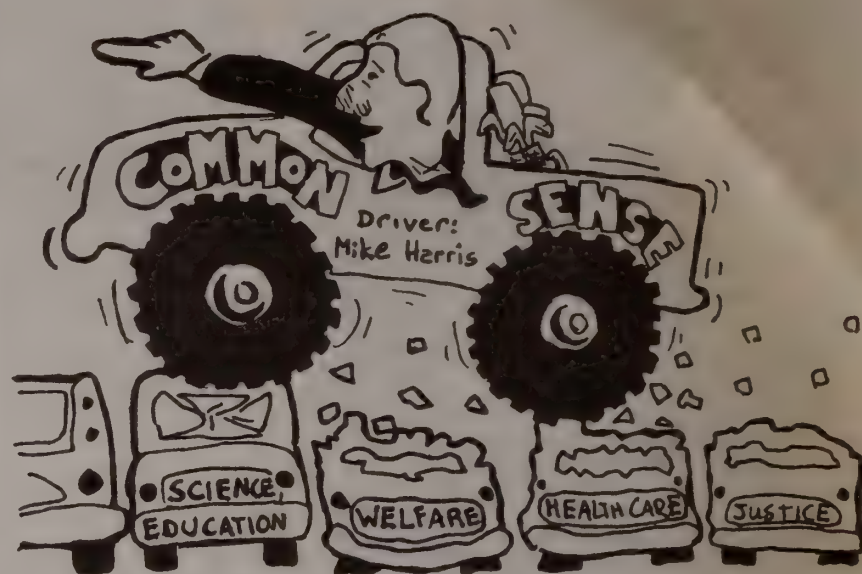 COMMON
SENSE
Driver:
Mike Harris
SCIENCE
EDUCATION
WELFARE
HEALTH CARE
JUSTICE